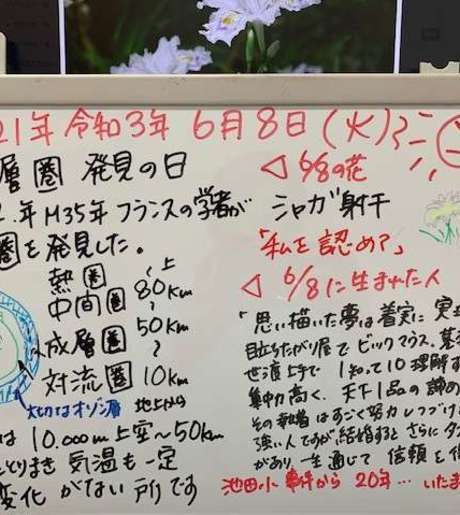 21年 令和3年 6月8日(火)
層圏 発見の日
2.年M35年 フランスの学者が
圏を発見した。
熱圏 上
中間圏 80Km
成層圏 50Km
対流圏 10Km
大切なオゾン層 地上から
は 10.000m上空~50Km
とりまき 気温も一定
変化 がない所です
◁6/8の花
シャガ 射干
「私を認めて」
◁6/8に生まれた人
「思い描いた夢は着実に実現
目立ちたがり屋で ビックマウス、
世渡上手で 1知って10理解す
集中力高く、天下1品の諦め
その 率直はすごく努力しラブ
強い人ですが結婚するとさらに
があり、一生通じて 信頼を得
池田小 事件から 20年… いたま